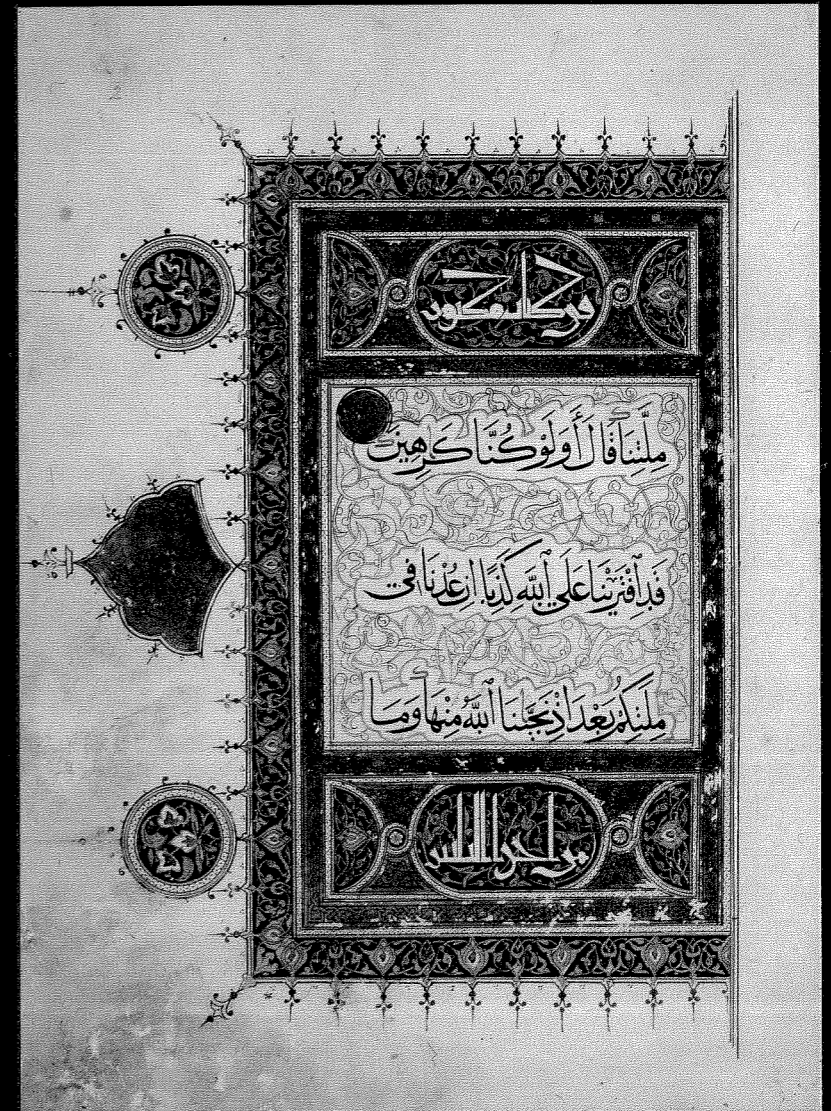 في كتاب مكنون
مِلَّتِنَا قَالَ أَوَلَوْ كُنَّا كَرِهِينَ
قَدِ ٱفْتَرَيْنَا عَلَى ٱللَّهِ كَذِبًا اِنْ عُدْنَا فِي
مِلَّتِكُمْ بَعْدَ اِذْ نَجَّىٰنَا ٱللَّهُ مِنْهَا وَمَا
من